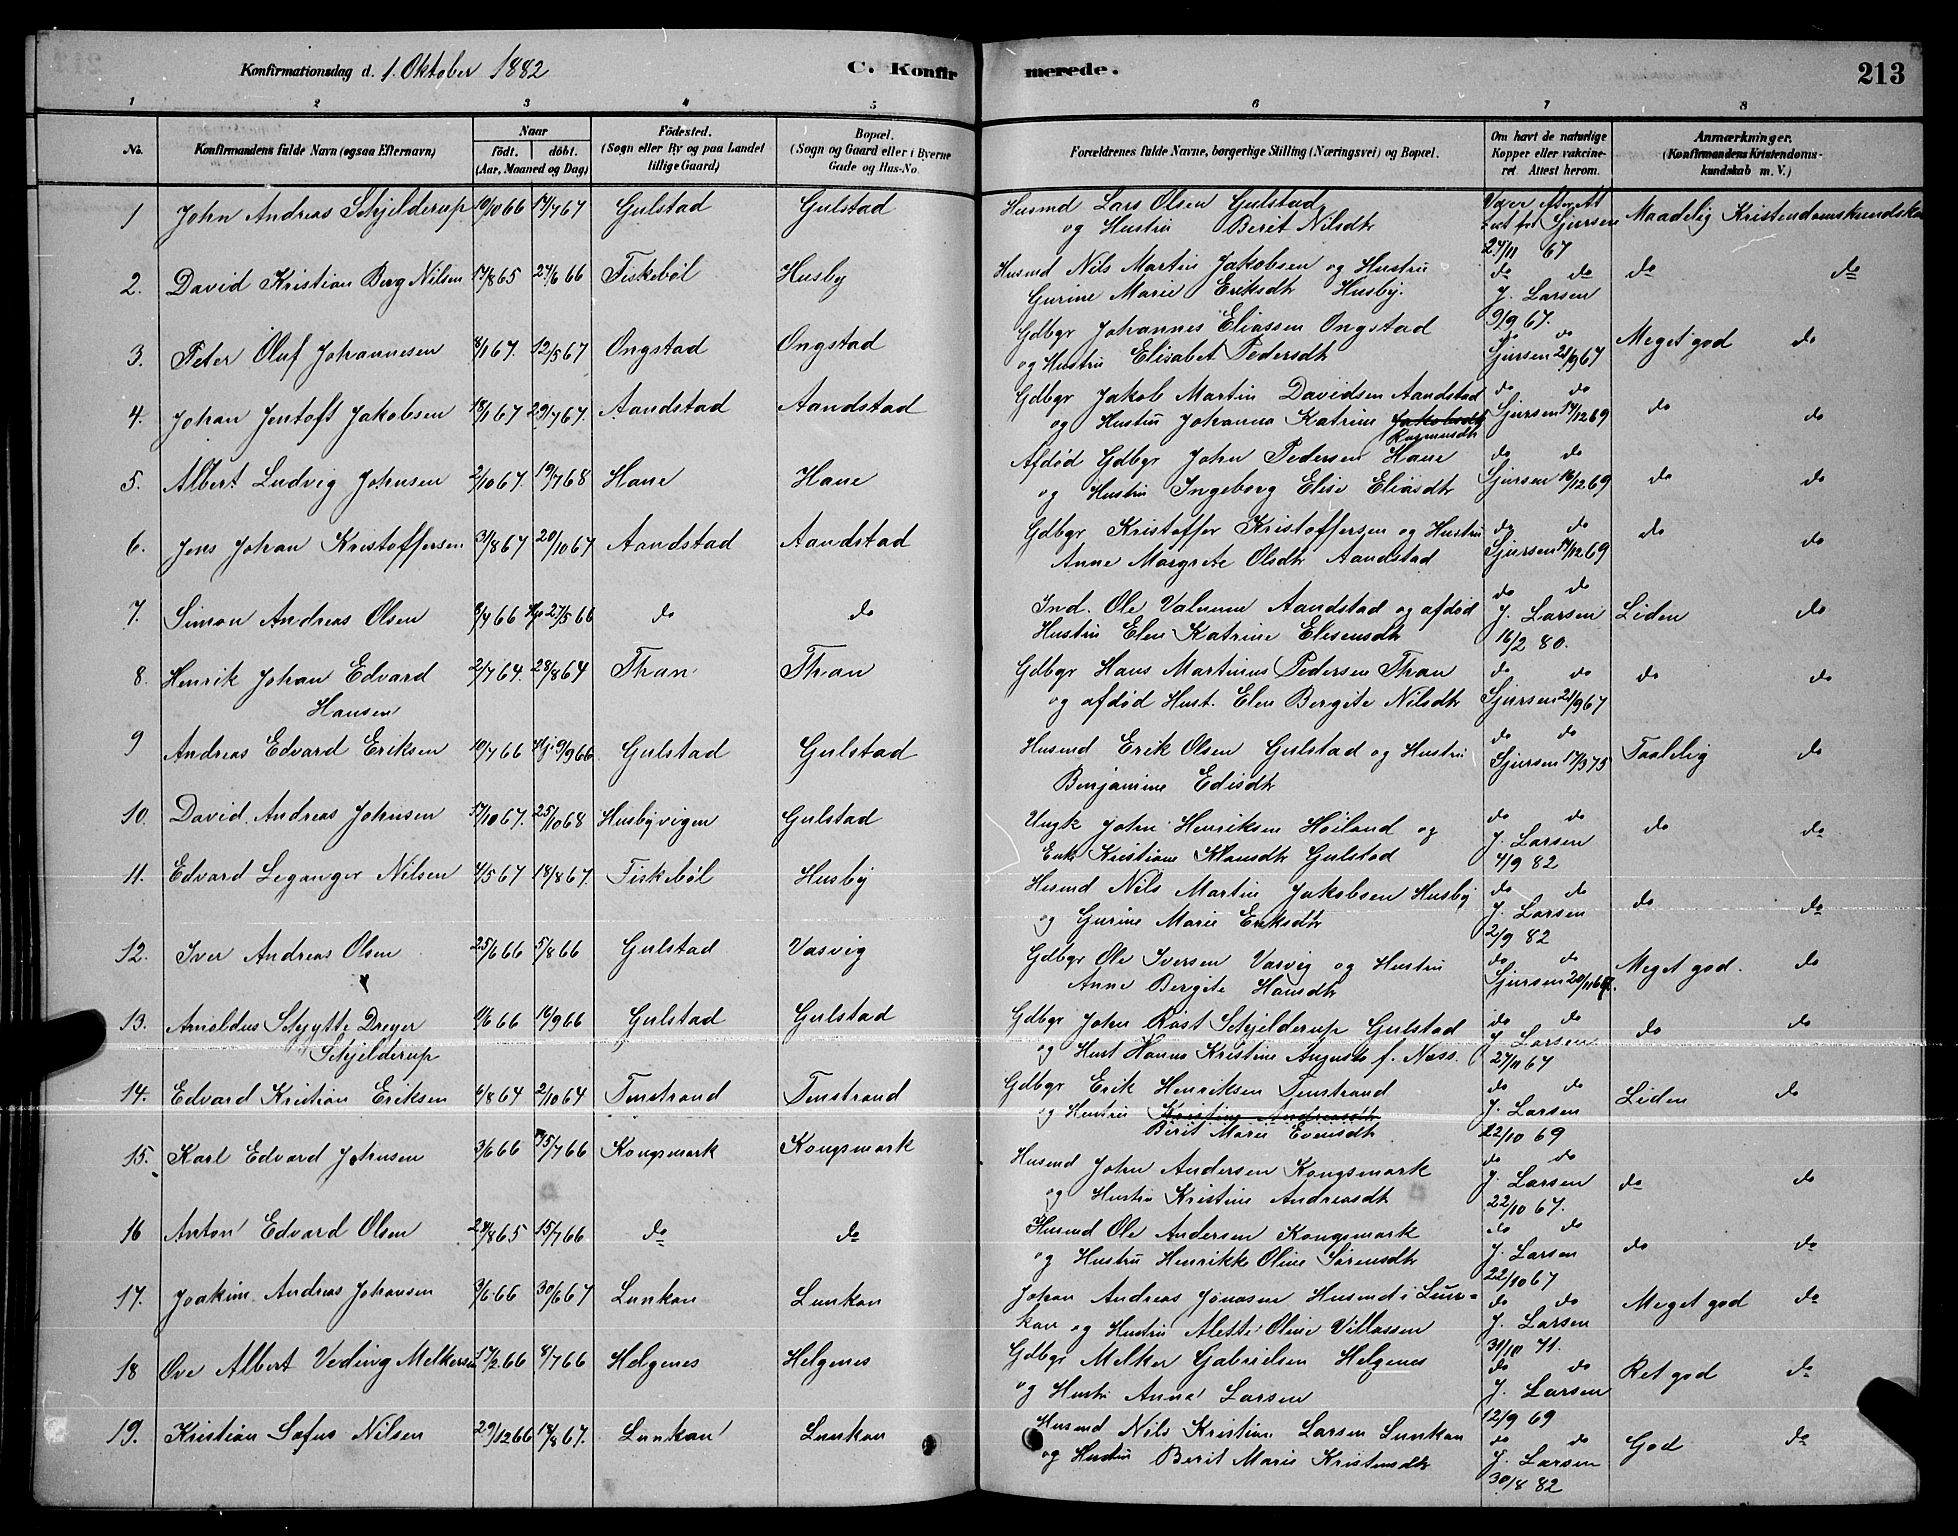 Konfirmationsdag d. 1. Oktober 1882 C. Konfirmerede. 213
1 2 3 4 5 6 7 8
No. Konfirmandens fulde Navn (ogsaa Efternavn) Naar født. døbt. (Aar, Maaned og Dag) Födested. (Sogn eller By og paa Landet tillige Gaard) Bopæl. (Sogn og Gaard eller i Byerne Gade og Hus-No. Forældrenes fulde Navne, borgerlige Stilling (Næringsvei) og Bopæl. Om havt de naturlige Kopper eller vakcineret. Attest herom. Anmærkninger. (Konfirmandens Kristendomskundskab m. V.)
1 John Andreas Schjelderup 10/10 66 17/4 67 Gulstad Gulstad Husmd Lars Olsen Gulstad Maadelig Kristendomskundskab
og Hustru Berit Nilsdtr Sjursen
27/11 67
2. David Kristian Berg Nilsen 17/8 65 27/6 66 Fiskebøl Husby Husmd Nils Martin Jakobsen og Hustru do do do do
Gurine Marie Eriksdtr Husby. J. Larsen
9/9 67.
3. Peter Oluf Johannesen 8/1 67. 12/5 67 Ongstad Ongstad Gdbgr Johannes Eliassen Ongstad do do Meget god do
og Hustru Elisabet Pedersdtr Sjursen 21/9 67
4. Johan Jentoft Jakobsen 18/1 67 29/7 67. Aandstad Aandstad Gdbgr Jakob Martin Davidsen Aandstad do do do do
og Hustru Johanna Katrine Jakobsdtr Sjursen 17/12 69
Rasmusdtr
5. Albert Ludvig Johnsen 2/10 67. 19/7 68 Hane Hane Afdød Gdbgr John Pedersen Hane do do do do
og Hustru Ingeborg Elise Eliasdtr Sjursen 16/12 69
6. Jens Johan Kristoffersen 31/8 67 20/10 67 Aandstad Aandstad Gdbgr Kristoffer Kristoffersen og Hustru do do do do
Anne Margrete Olsdtr Aandstad Sjursen 17/12 69
7. Simon Andreas Olsen 8/4 66 Hj. 27/5 66 do do Ind. Ole Valnum Aandstad og afdød do do Liden do
Hustru Elen Katrine Elisensdtr J. Larsen
16/2 80.
8. Henrik Johan Edvard 2/7 64. 28/8 64 Thran Thran Gdbgr Hans Martinus Pedersen Thran do do do do
Hansen og afdød Hust. Elen Bergite Nilsdtr Sjursen 21/9 67
9 Andreas Edvard Eriksen 10/7 66 Hj. 9/9 66 Gulstad Gulstad Husmd Erik Olsen Gulstad og Hustru do do Taalelig do
Benjamine Edisdtr Sjursen 17/3 75
10. David Andreas Johnsen 17/10 67. 25/10 68 Husbyvigen Gulstad Ungk John Henriksen Høiland og do do do do
Enke Kristiane Klausdtr Gulstad J. Larsen
4/9 82
11. Edvard Leganger Nilsen 4/5 67 18/8 67. Fiskebøl Husby Husmd Nils Martin Jakobsen Husby do do do do
og Gurine Marie Eriksdtr J. Larsen
2/9 82
12. Iver Andreas Olsen 25/6 66 5/8 66 Gulstad Vasvig Gdbgr Ole Iversen Varvig og Hustru do do Meget god. do
Anne Bergite Hansdtr Sjursen
13. Arnoldus Schytte Dreyer 11/6 66 16/9 66 Gulstad Gulstad Gdbgr John Røst Schjelderup Gulstad do do do do
Schjelderup og Hust Hanna Kristine Augusta f. Næss. J. Larsen
27/11 67
14. Edvard Kristian Eriksen 6/8 64 2/10 64 Tenstrand Tenstrand Gdbgr Erik Henriksen Tenstrand do do Liden do
og Hustru Kristine Andreasdtr J. Larsen
Berit Marie Evensdtr 22/10 69
15. Karl Edvard Johnsen 3/6 66 15/7 66 Kongsmark Kongsmark Husmd John Andersen Kongsmark do do do do
og Hustru Kristine Andreasdtr J. Larsen
22/10 67.
16 Anton Edvard Olsen 24/8 65 15/7 66 do do Husmd Ole Andersen Kongsmark do do do do
og Hustru Henrikke Oline Sørensdtr J. Larsen
22/10 67
17. Joakim Andreas Johansen 3/6 66 30/6 67 Lunkan Lunkan Johan Andreas Jonasen Husmd i Lun- do do Meget god do
kan og Hustru Alette Oline Villassen J. Larsen
31/10 71.
18 Ove Albert Veding Melkersen 17/2 66 8/7 66 Helgenes Helgenes Gdbgr Melker Gabrielsen Helgenes do do Ret god do
og Hustr Anna Larsen J. Larsen
12/9 69
19. Kristian Sofus Nilsen 29/12 66 18/8 67. Lunkan Lunkan Husmd Nils Kristian Larsen Lunkan do do God do
og Hustru Berit Marie Kristensdtr J. Larsen
30/8 82